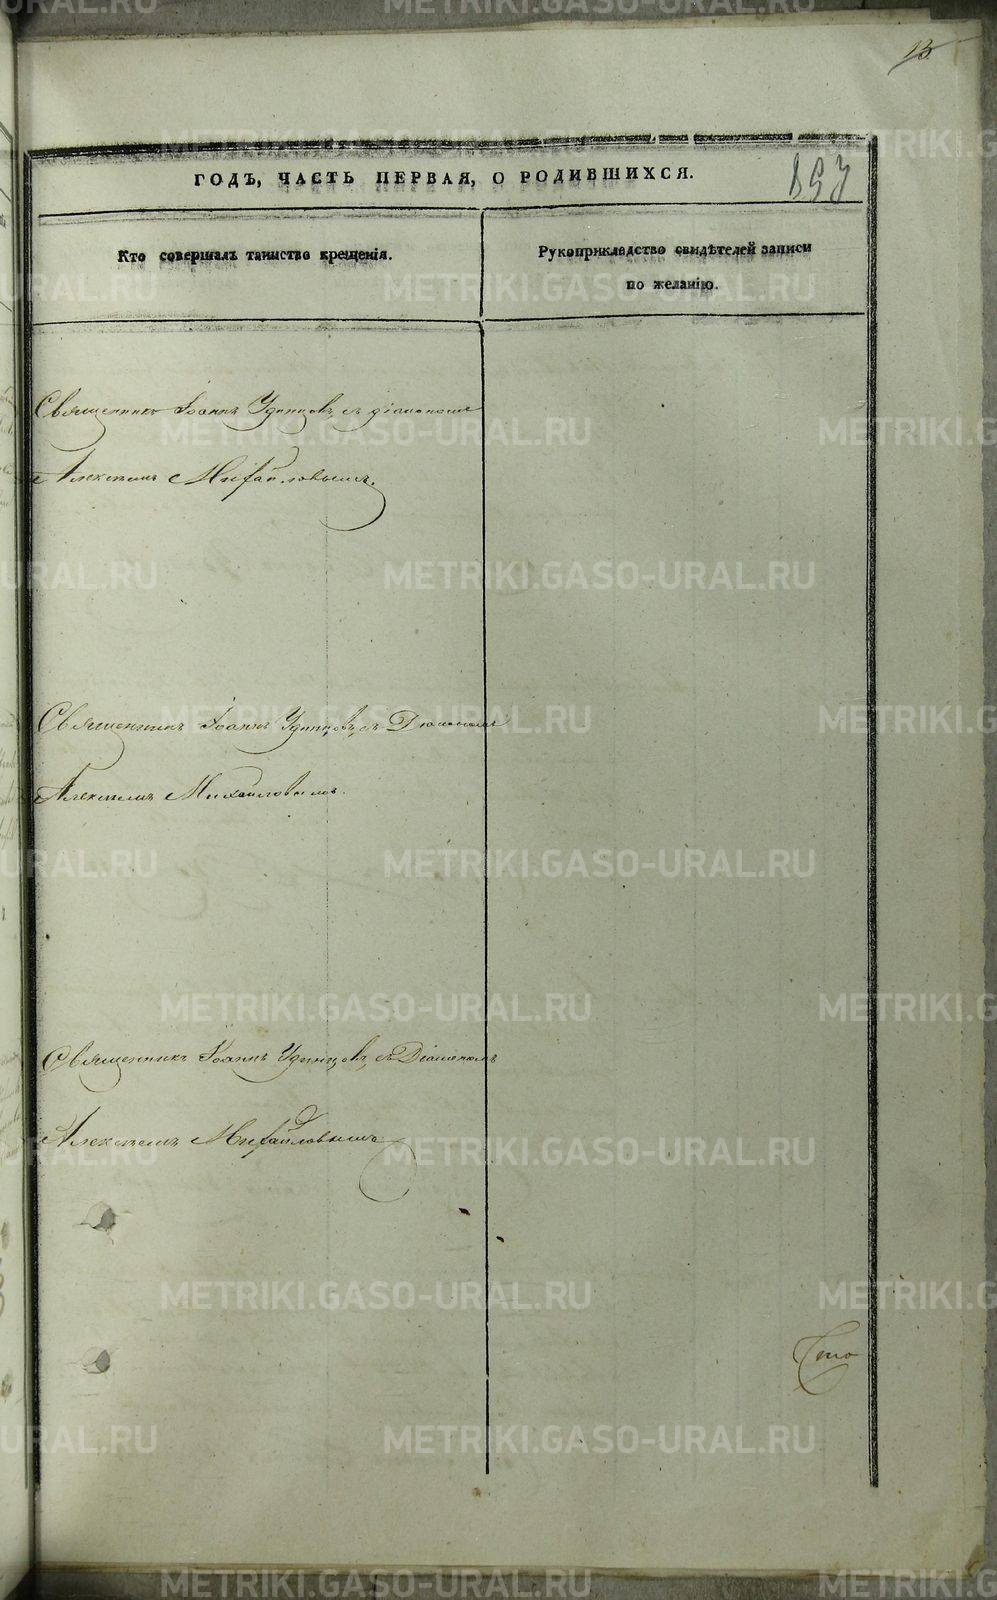 13
857
ГОДЪ, ЧАСТЬ ПЕРВАЯ, О РОДИВШИХСЯ.
Кто совершалъ таинство крещенія.
Рукоприкладство свидѣтелей записи
по желанію.
Священникъ Іоаннъ Удинцовъ съ діакономъ
Алексѣемъ Михайловымъ.
Священникъ Іоаннъ Удинцовъ съ Діакономъ
Алексѣемъ Михайловымъ.
Священникъ Іоаннъ Удинцовъ съ Діакономъ
Алексѣемъ Михайловымъ
METRIKI.GASO-URAL.RU